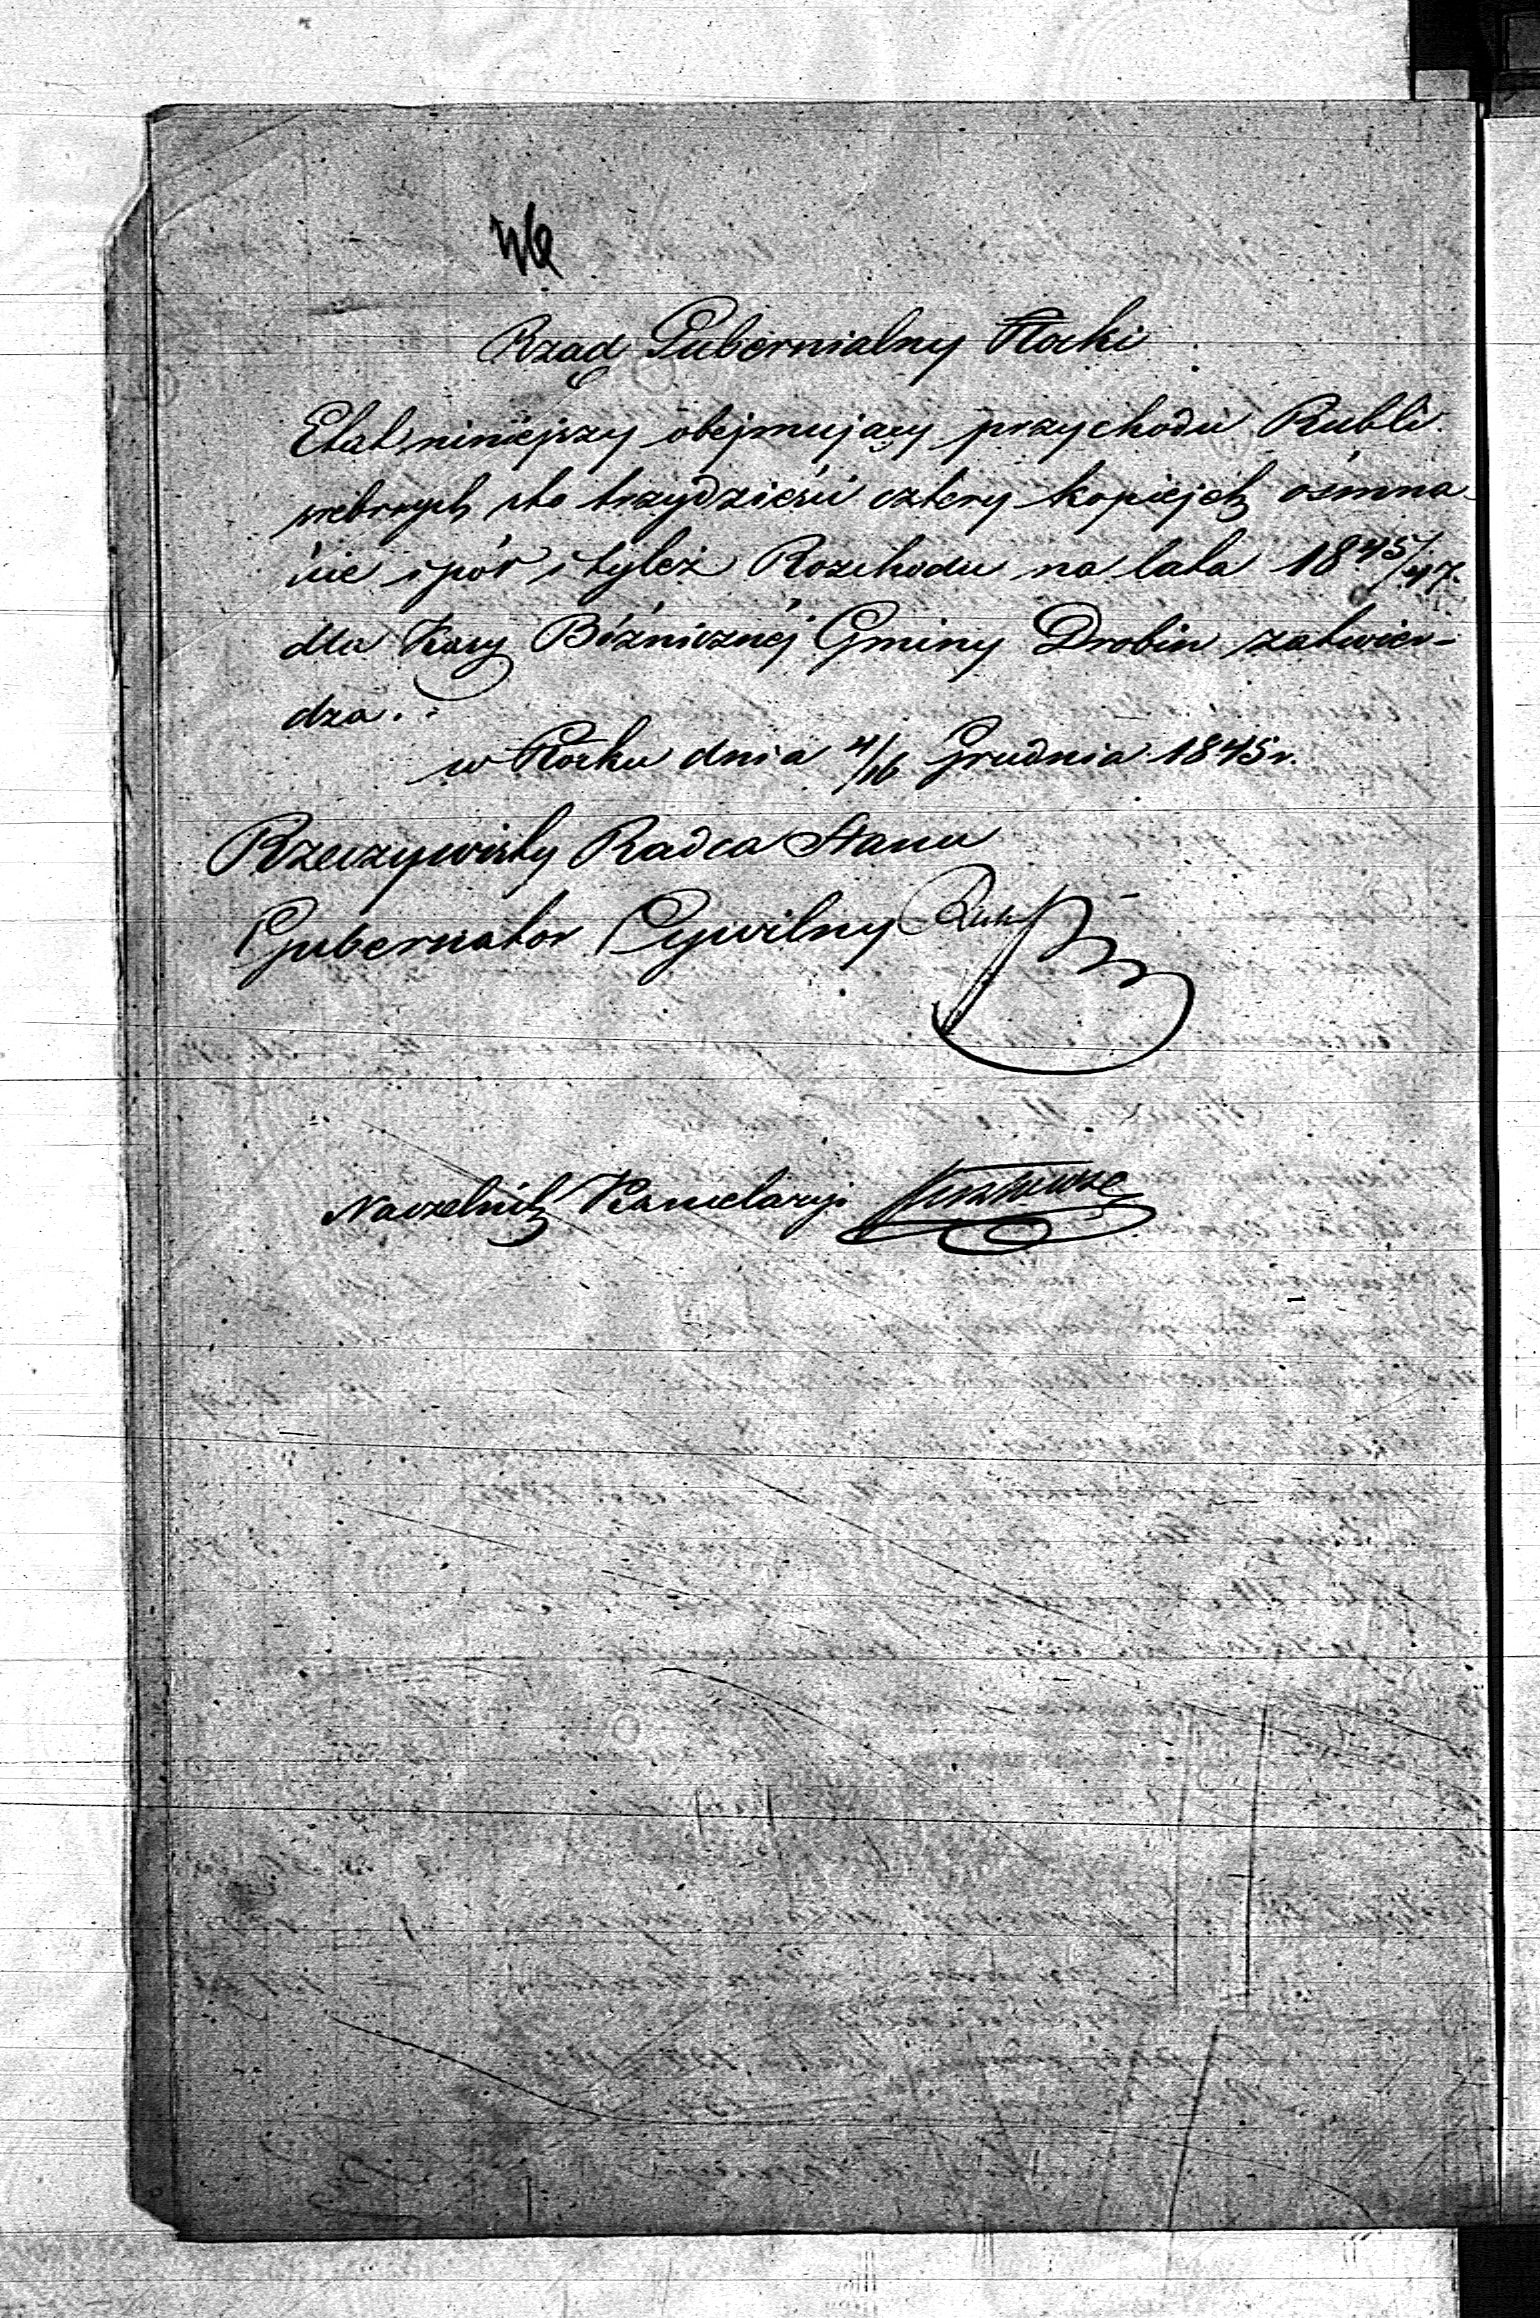 Rząd Gubernialny Płocki
Etat niniejszy obejmujący przychodu Rubli
srebrnych sto trzydzieści cztery kopiejek ośmna
ście i pół i tyleż Rozchodu na lata 1845/47.
dla Kasy Bóżnicznéj Gminy Drobin zatwier-
dza.
w Płocku dnia 4/16 Grudnia 1845 r.
Rzeczywisty Radca Stanu
Gubernator Cywilny
Naczelnik Kancelaryi